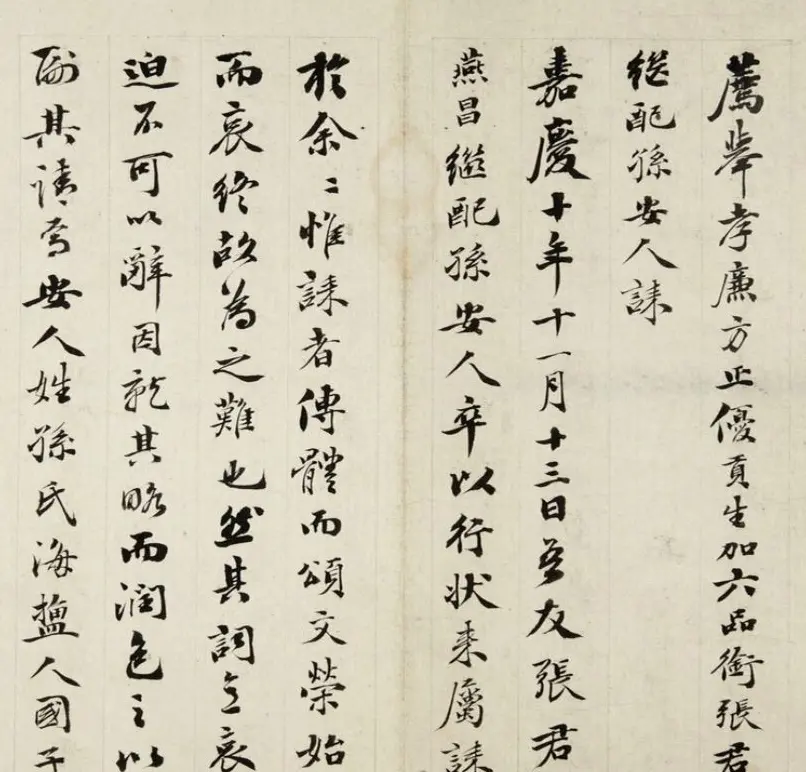 薦舉孝廉方正優貢生加六品銜張君
繼配孫安人誄
嘉慶十年十一月十三日吾友張君
燕昌繼配孫安人卒以行狀來屬誄
於余〻惟誄者傳體而頌文榮始
而哀終故為之難也然其詞立哀
迫不可以辭因就其略而潤色之以
酬其請焉安人姓孫氏海鹽人國子